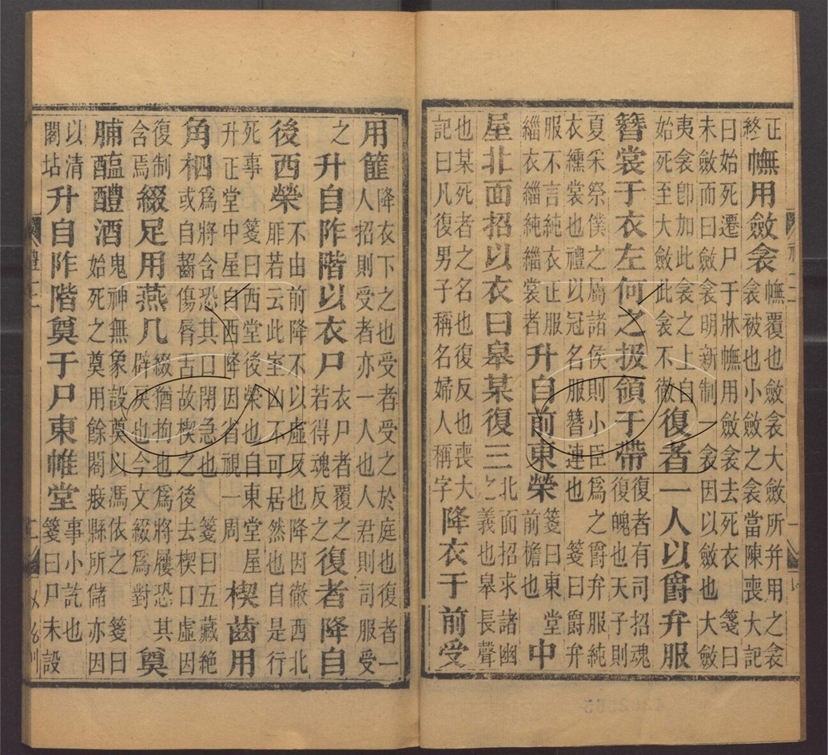 正
終
幠用斂衾
幠覆也斂衾大斂所并用之衾
衾被也小斂之衾當陳喪大記
曰始死遷尸于牀幠用斂衾去死衣箋曰
未斂而曰斂衾明新制衾因以斂也大斂
夷衾卽加此衾之上自
始死至大斂此衾不徹
復者一人以爵弁服
簪裳于衣左何之扱領于帶
復者有司招魂
復魄也天子則
夏采祭僕之屬諸侯則小臣爲之爵弁服純
衣纁裳也禮以冠名服簪連也箋曰爵弁
服不言純衣正服
緇衣緇純緇裳者
升自前東榮
箋曰東堂
前檐也
中
屋北面招以衣曰皋某復三
北面招求諸幽
之義也皋長聲
也某死者之名也復反也喪大
記曰凡復男子稱名婦人稱字
降衣于前受
用篚
降衣下之也受者受之於庭也復者一
人招則受者亦一人也人君則司服受
之
升自阼階以衣尸
衣尸者覆之
若得魂反之
復者降自
後西榮
不由前降不以虛反也降因徹西北
厞若云此室凶不可居然也自是行
死事箋曰西堂後榮也自東堂屋
升正堂中屋自西降因省視一周
楔齒用
角柶
爲將含恐其口閉急也箋曰五藏絕
或自齧傷脣舌故楔之後去楔口虛因
復制
含焉
綴足用燕几
綴猶拘也爲將屨恐其
辟戾也今文綴爲對
奠
脯醢醴酒
鬼神無象設奠以馮依之箋曰
始死之奠用餘閣庪縣所儲亦因
以清
閣坫
升自阼階奠于尸東帷堂
事小訖也
箋曰尸未設